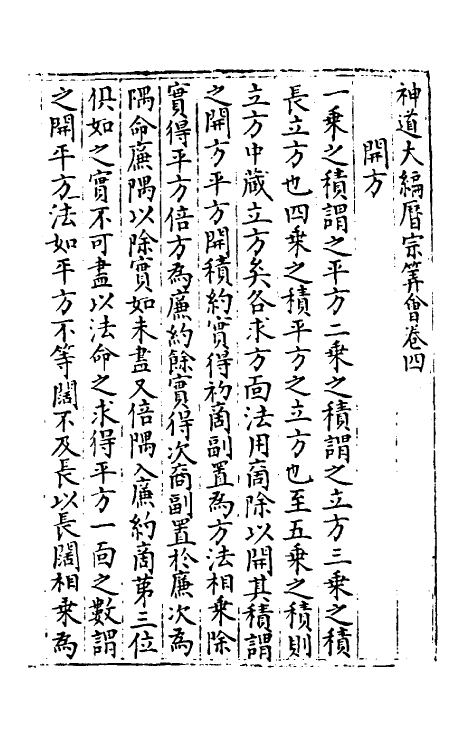 神道大編曆宗筭會卷四
開方
一乘之積謂之平方二乘之積謂之立方三乘之積
長立方也四乘之積平方之立方也至五乘之積則
立方中藏立方矣各求方面法用商除以開其積謂
之開方平方開積約實得初商副置為方法相乘除
實得平方倍方為廉約餘實得次商副置於廉次為
隅命廉隅以除實如未盡又倍隅入廉約商第三位
俱如之實不可盡以法命之求得平方一面之數謂
之開平方法如平方不等闊不及長以長闊相乘為